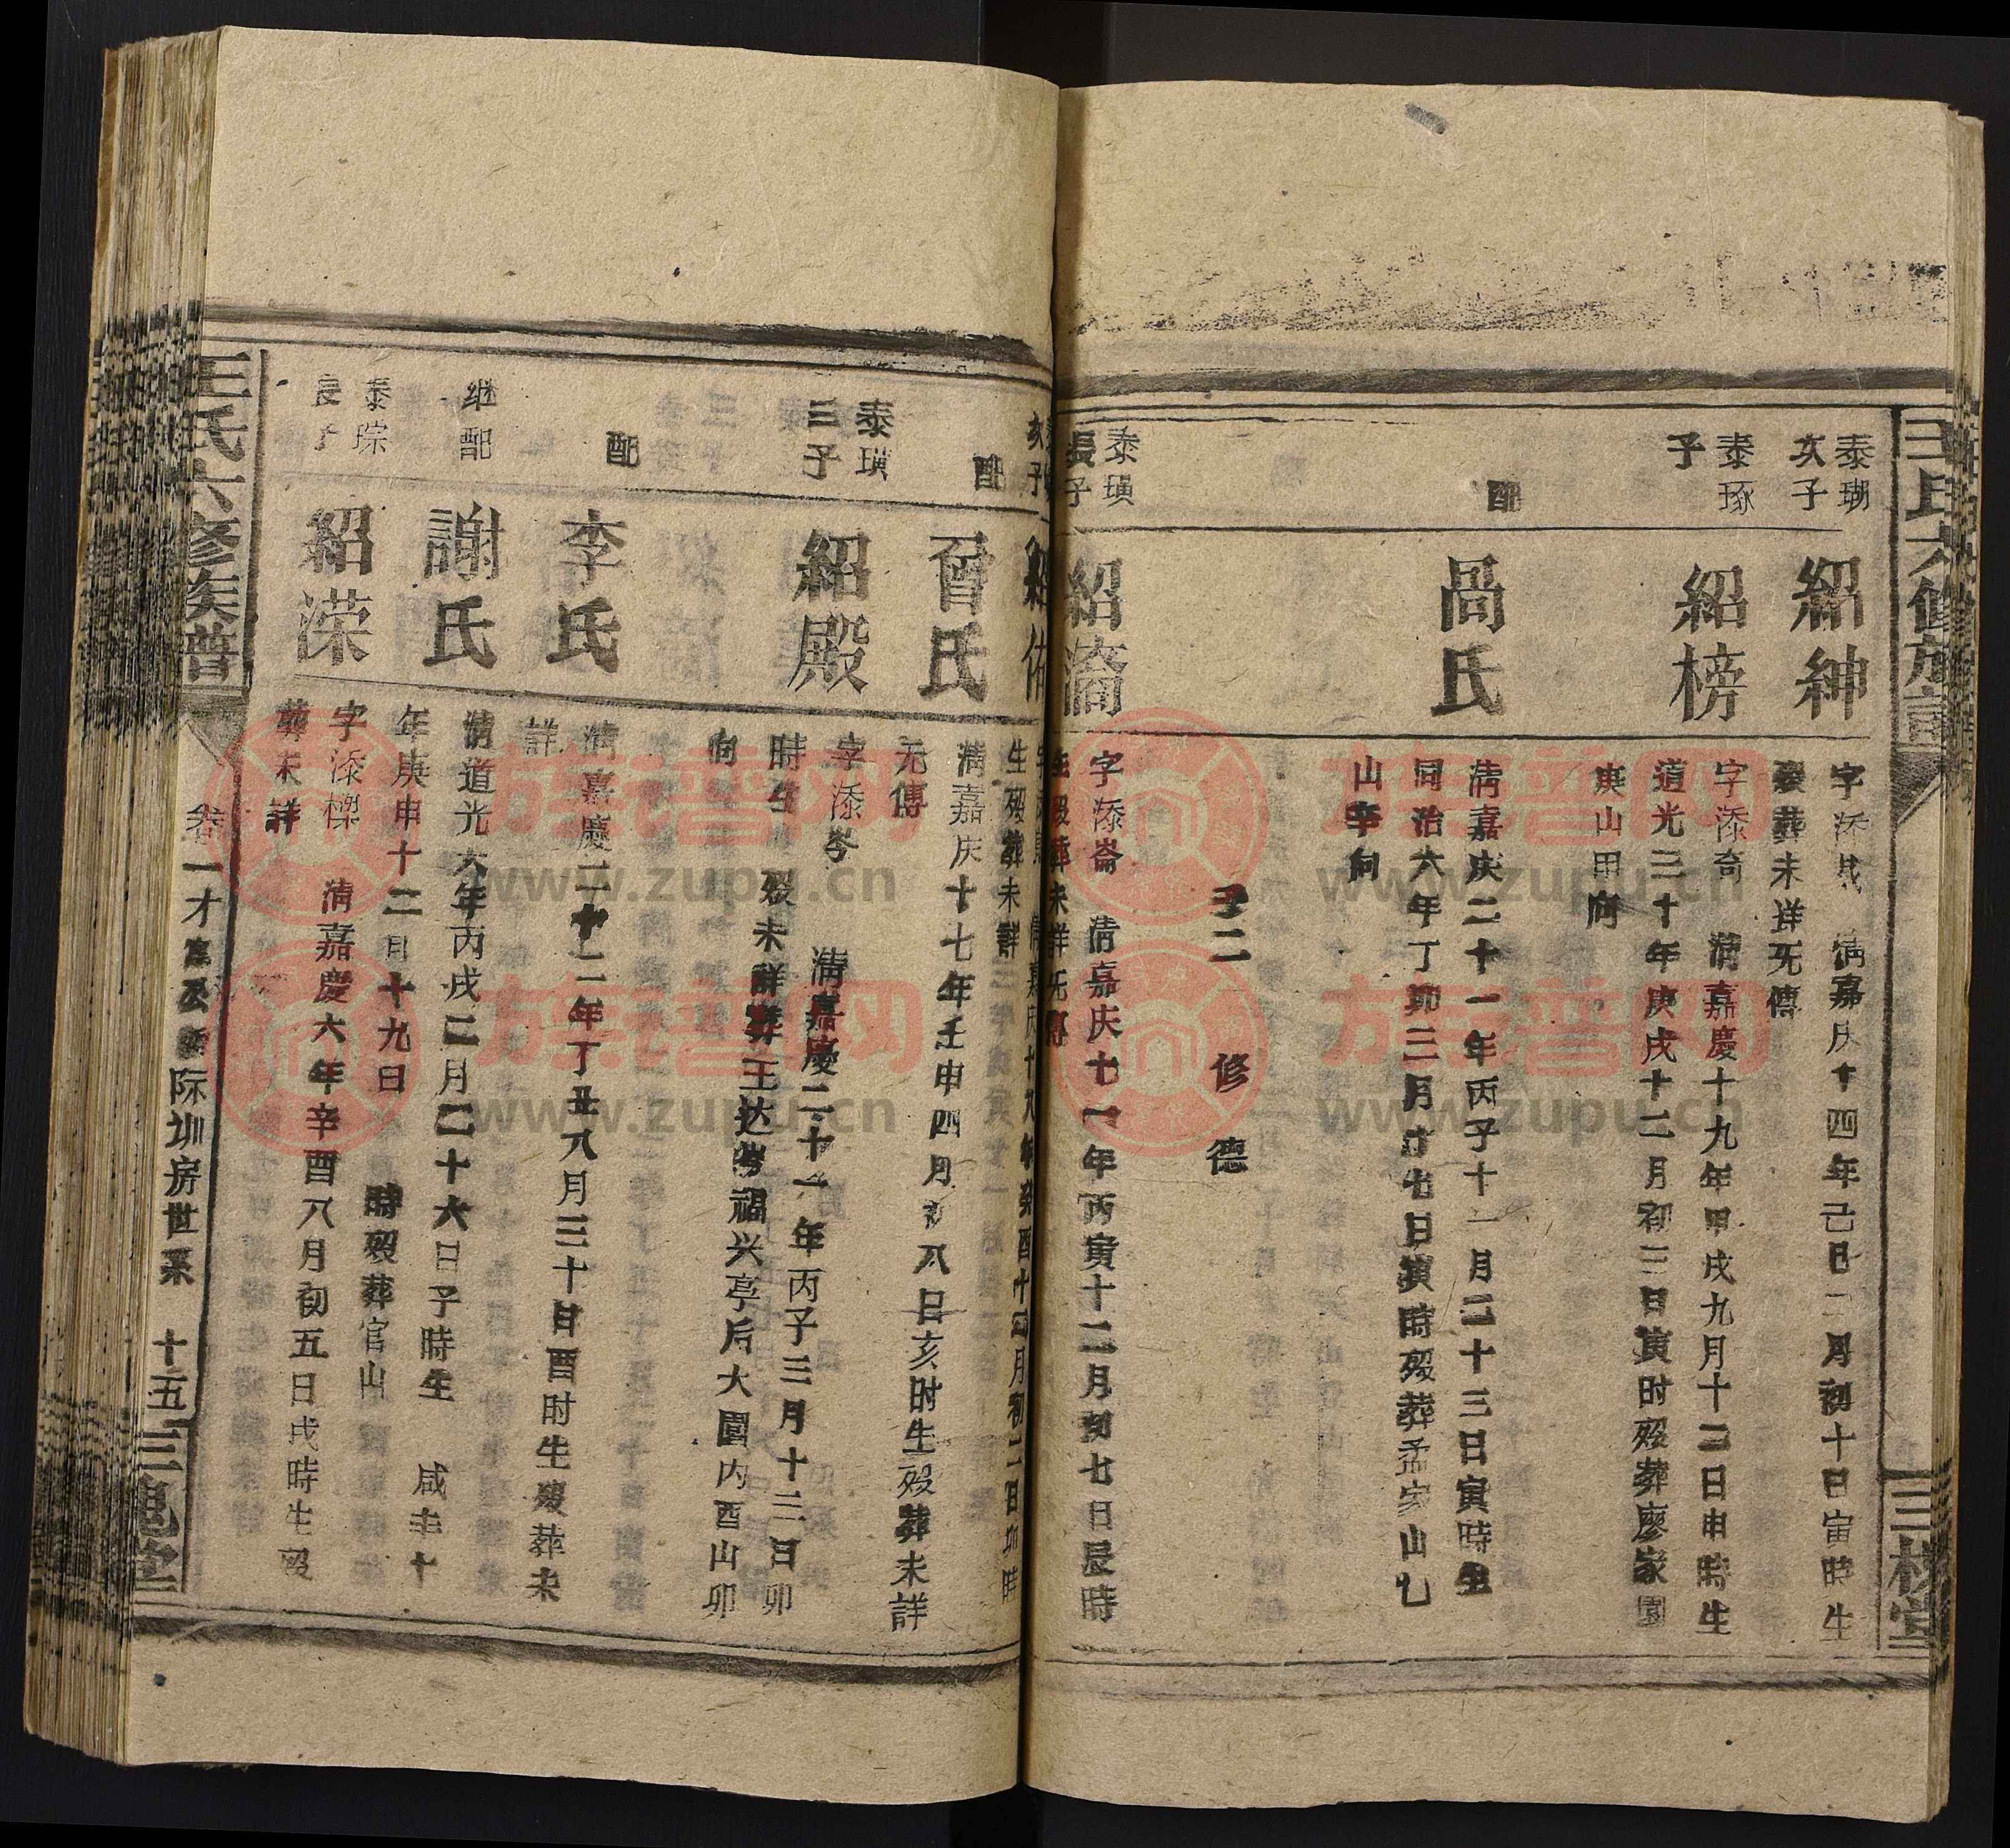 王氏六修族譜
三槐堂
泰瑚
次子
紹紳
字添
清嘉庆十四年己巳二月初十日寅時生
殁葬未详无傳
泰琢
子
紹榜
字添奇 清嘉慶十九年甲戌九月十二日申時生
道光三十年庚戌十二月初三日寅时殁葬廖家園
庚山甲向
配
咼氏
清嘉庆二十一年丙子十一月二十三日寅時生
同治六年丁卯三月廿七日寅時殁葬孟家山乙
山辛向
子二 修 德
泰璜
長子
紹裔
字添崙 清嘉庆十一年丙寅十二月初七日辰時
生殁葬未详无傳
次子
紹佑
清嘉庆十九年
十二月初二日卯時
生殁葬未詳
配
曾氏
清嘉庆十七年壬申四月初八日亥时生殁葬未詳
无傳
泰璜
三子
紹殿
字添岑 清嘉慶二十一年丙子三月十三日卯
時生 殁未詳葬王达
福兴亭后大園内酉山卯
向
配
李氏
清嘉慶二十二年丁丑八月三十日酉时生殁葬未
詳
继配
謝氏
清道光六年丙戌二月二十六日子時生 咸丰十
年庚申十二月十九日 時殁葬官山
泰琮
長子
紹溁
字添樑 清嘉慶六年辛酉八月初五日戌時生殁
葬未詳
王氏六修族譜
卷一才富公
际圳房世系 十五
三槐堂
族譜网
www.zupu.cn
族譜网
www.zupu.cn
族譜网
www.zupu.cn
族譜网
www.zupu.cn